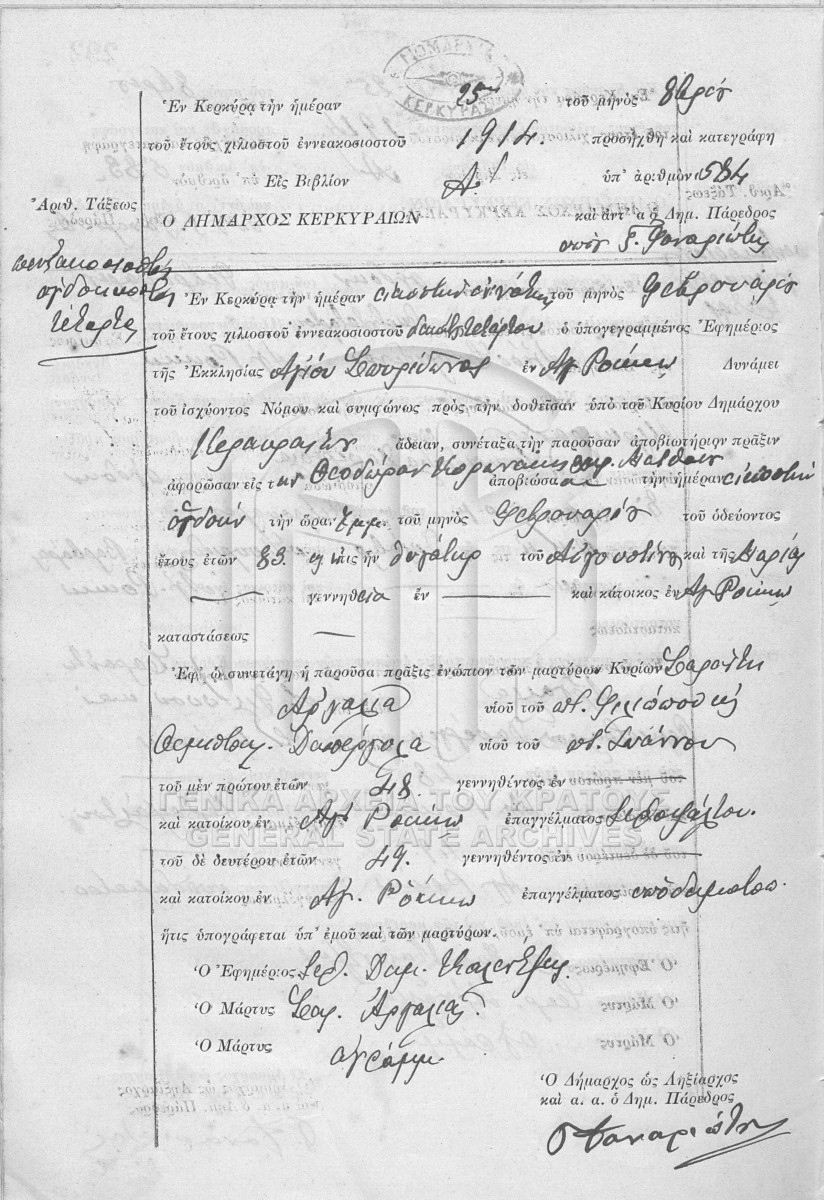 ΔΗΜΑΡΧ ΚΕΡΚΥΡΑΣ
Ἐν Κερκύρᾳ τὴν ἡμέραν 25 τοῦ μηνὸς 8βρίου
τοῦ ἔτους χιλιοστοῦ ἐννεακοσιοστοῦ 1914. προσήχθη καὶ κατεγράφη
Εἰς Βιβλίον Α' ὑπ' ἀριθμὸν 584
Ἀριθ. Τάξεως
Ὁ ΔΗΜΑΡΧΟΣ ΚΕΡΚΥΡΑΙΩΝ καὶ ἀντ' α ὁ Δημ. Πάρεδρος
Φαναριώτης
πεντακοσιοστὴ
ὀγδοηκοστὴ
τετάρτη
Ἐν Κερκύρᾳ τὴν ἡμέραν εἰκοστὴν ἐννάτην τοῦ μηνὸς Φεβρουαρίου
τοῦ ἔτους χιλιοστοῦ ἐννεακοσιοστοῦ δεκάτου τετάρτου ὁ ὑπογεγραμμένος Ἐφημέριος
τῆς Ἐκκλησίας Ἁγίου Σπυρίδωνος ἐν Ἁγ. Ρόκκῳ Δυνάμει
τοῦ ἰσχύοντος Νόμου καὶ συμφώνως πρὸς τὴν δοθεῖσαν ὑπὸ τοῦ Κυρίου Δημάρχου
Κερκυραίων ἄδειαν, συνέταξα τὴν παροῦσαν ἀποβιωτήριον πρᾶξιν
ἀφορῶσαν εἰς τὴν Θεοδώραν ἀποβιώσασαν τὴν ἡμέραν εἰκοστὴν
ὀγδόην τὴν ὥραν 7 μ.μ. τοῦ μηνὸς Φεβρουαρίου τοῦ ὁδεύοντος
ἔτους ἐτῶν 83. ἥτις ἦν θυγάτηρ τοῦ Αὐγουστίνου καὶ τῆς Μαρίας
γεννηθεῖσα ἐν — καὶ κάτοικος ἐν Ἁγ. Ρόκκῳ
καταστάσεως —
Ἐφ' ᾧ συνετάγη ἡ παροῦσα πρᾶξις ἐνώπιον τῶν μαρτύρων Κυρίων Σαράντη
Ἀργαλιᾶ υἱοῦ τοῦ ποτ. Φιλίππου καὶ
Θεμιστοκλ. υἱοῦ τοῦ ποτ. Ἰωάννου
τοῦ μὲν πρώτου ἐτῶν 48. γεννηθέντος ἐν
καὶ κατοίκου ἐν Ἁγ. Ρόκκῳ ἐπαγγέλματος
ΓΕΝΙΚΑ ΑΡΧΕΙΑ ΤΟΥ ΚΡΑΤΟΥΣ
GENERAL STATE ARCHIVES
τοῦ δὲ δευτέρου ἐτῶν 49. γεννηθέντος ἐν
καὶ κατοίκου ἐν Ἁγ. Ρόκκῳ ἐπαγγέλματος ὑποδηματοπ.
ἥτις ὑπογράφεται ὑπ' ἐμοῦ καὶ τῶν μαρτύρων.
Ὁ Ἐφημέριος
Ὁ Μάρτυς Σαρ. Ἀργαλιᾶς
Ὁ Μάρτυς ἀγράμμ.
Ὁ Δήμαρχος ὡς Ληξίαρχος
καὶ α. α. ὁ Δημ. Πάρεδρος
Φαναριώτης